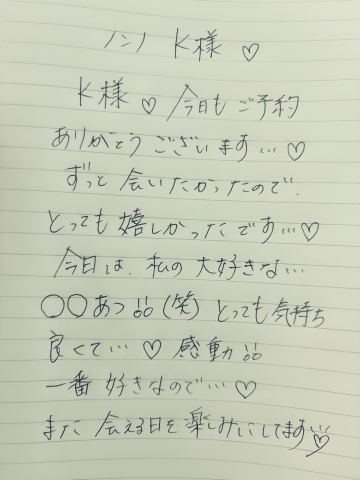 ノンノ K様 ♡
K様 ♡ 今日も ご予約
ありがとう ございます…♡
ずっと 会いたかったので、
とっても 嬉しかったです…♡
今日は、私の 大好きな…
○○あつ!!(笑) とっても 気持ち
良くて…♡ 感動!!
一番 好きなので…♡
また 会える日を 楽しみにしてます♡